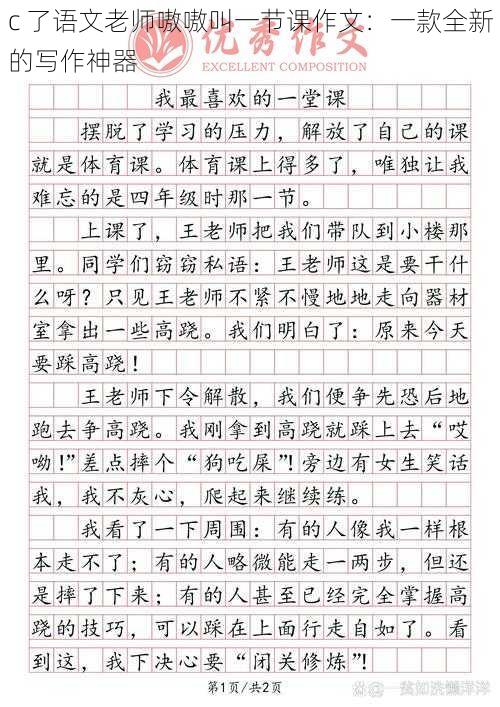 c 了语文老师嗷嗷叫一节课作文：一款全新
的写作神器
优秀作文
我最喜欢的一堂课
摆脱了学习的压力，解放了自己的课
就是体育课。体育课上得多了，唯独让我
难忘的是四年级时那一节。
上课了，王老师把我们带队到小楼那
里。同学们窃窃私语：王老师这是要干什
么呀？只见王老师不紧不慢地地走向器材
室拿出一些高跷。我们明白了：原来今天
要踩高跷！
王老师下令解散，我们便争先恐后地
跑去争高跷。我刚拿到高跷就踩上去“哎
呦！”差点摔个“狗吃屎”！旁边有女生笑话
我，我不灰心，爬起来继续练。
我看了一下周围：有的人像我一样根
本走不了；有的人略微能走一两步，但还
是摔了下来；有的人甚至已经完全掌握高
跷的技巧，可以踩在上面行走自如了。看
到这，我下决心要“闭关修炼”！
第1页/共2页